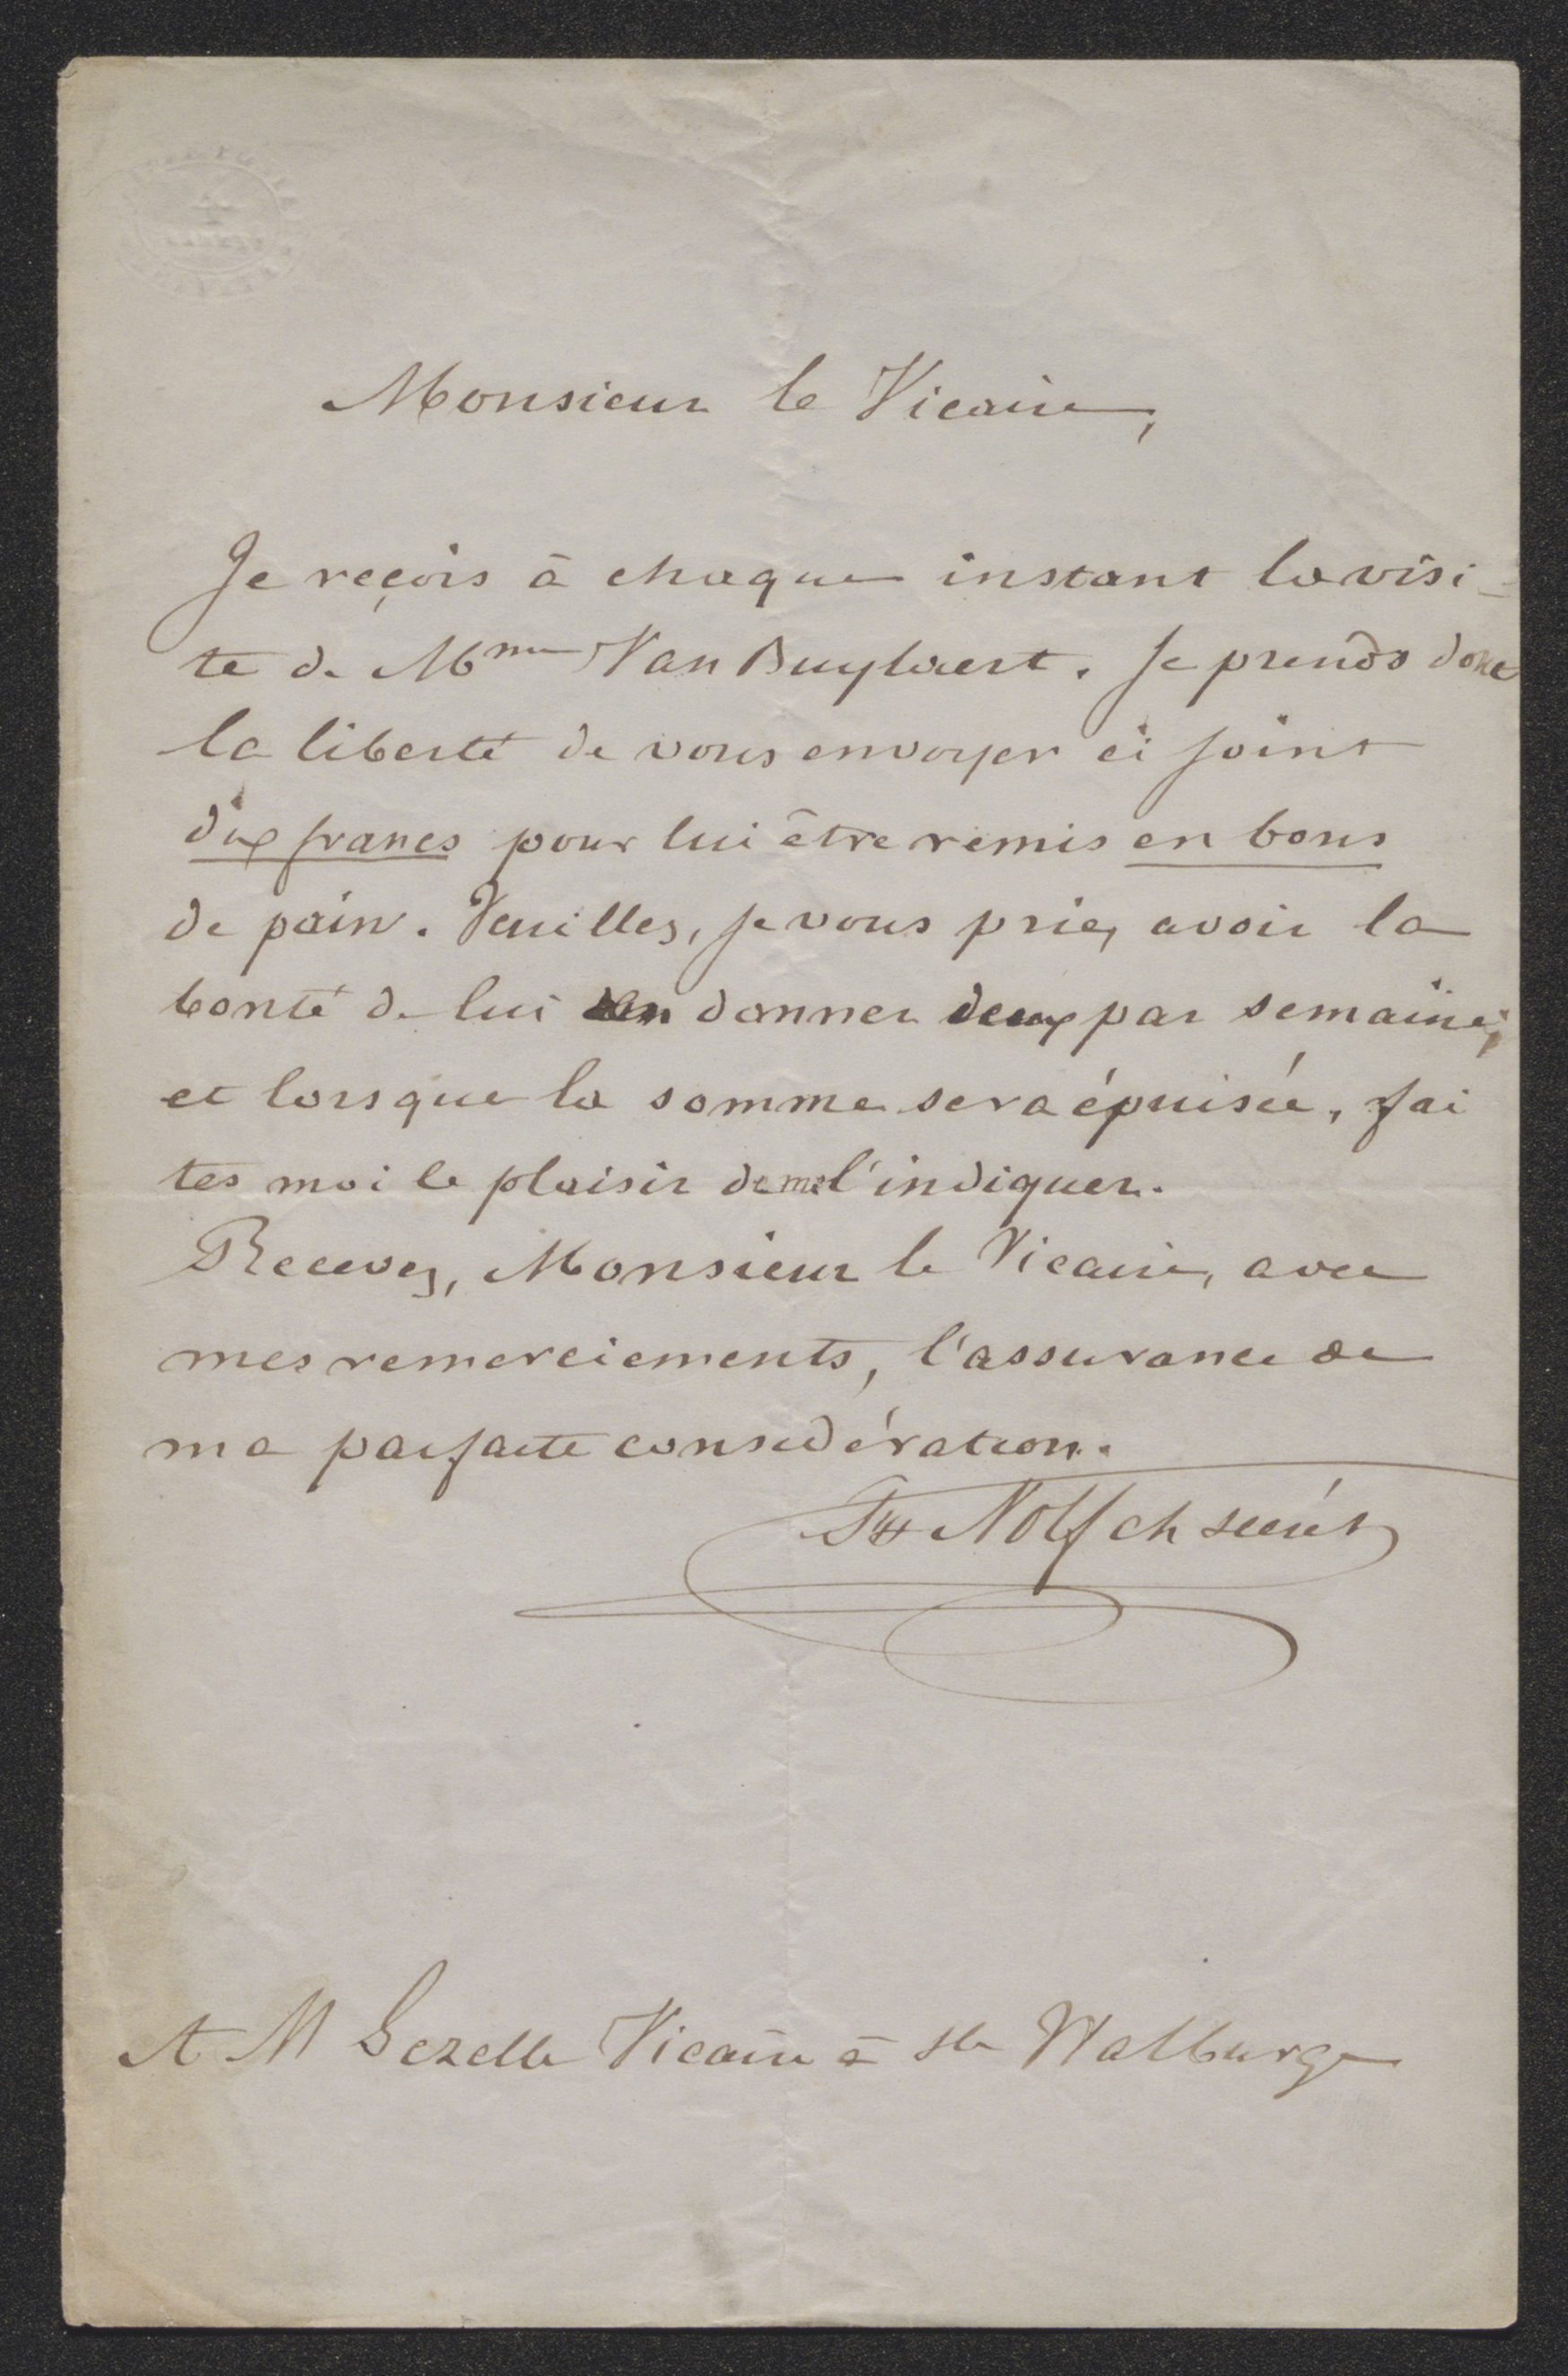 Monsieur le Vicaire,
Je reçois à chaque instant la visi-
te de Mme Van Buylaert. Je prends donc
la liberté de vous envoyer ci joint
dix francs pour lui être remis en bons
de pain. Veuillez, je vous prie, avoir la
bonté de lui en donner deux par semaine,
et lorsque la somme sera épuisée, fai
tes moi le plaisir de me l'indiquer.
Recevez, Monsieur le Vicaire, avec
mes remerciements, l'assurance de
ma parfaite considération.
Nolf ch secrét
A M Gezelle Vicaire à Ste Walburge